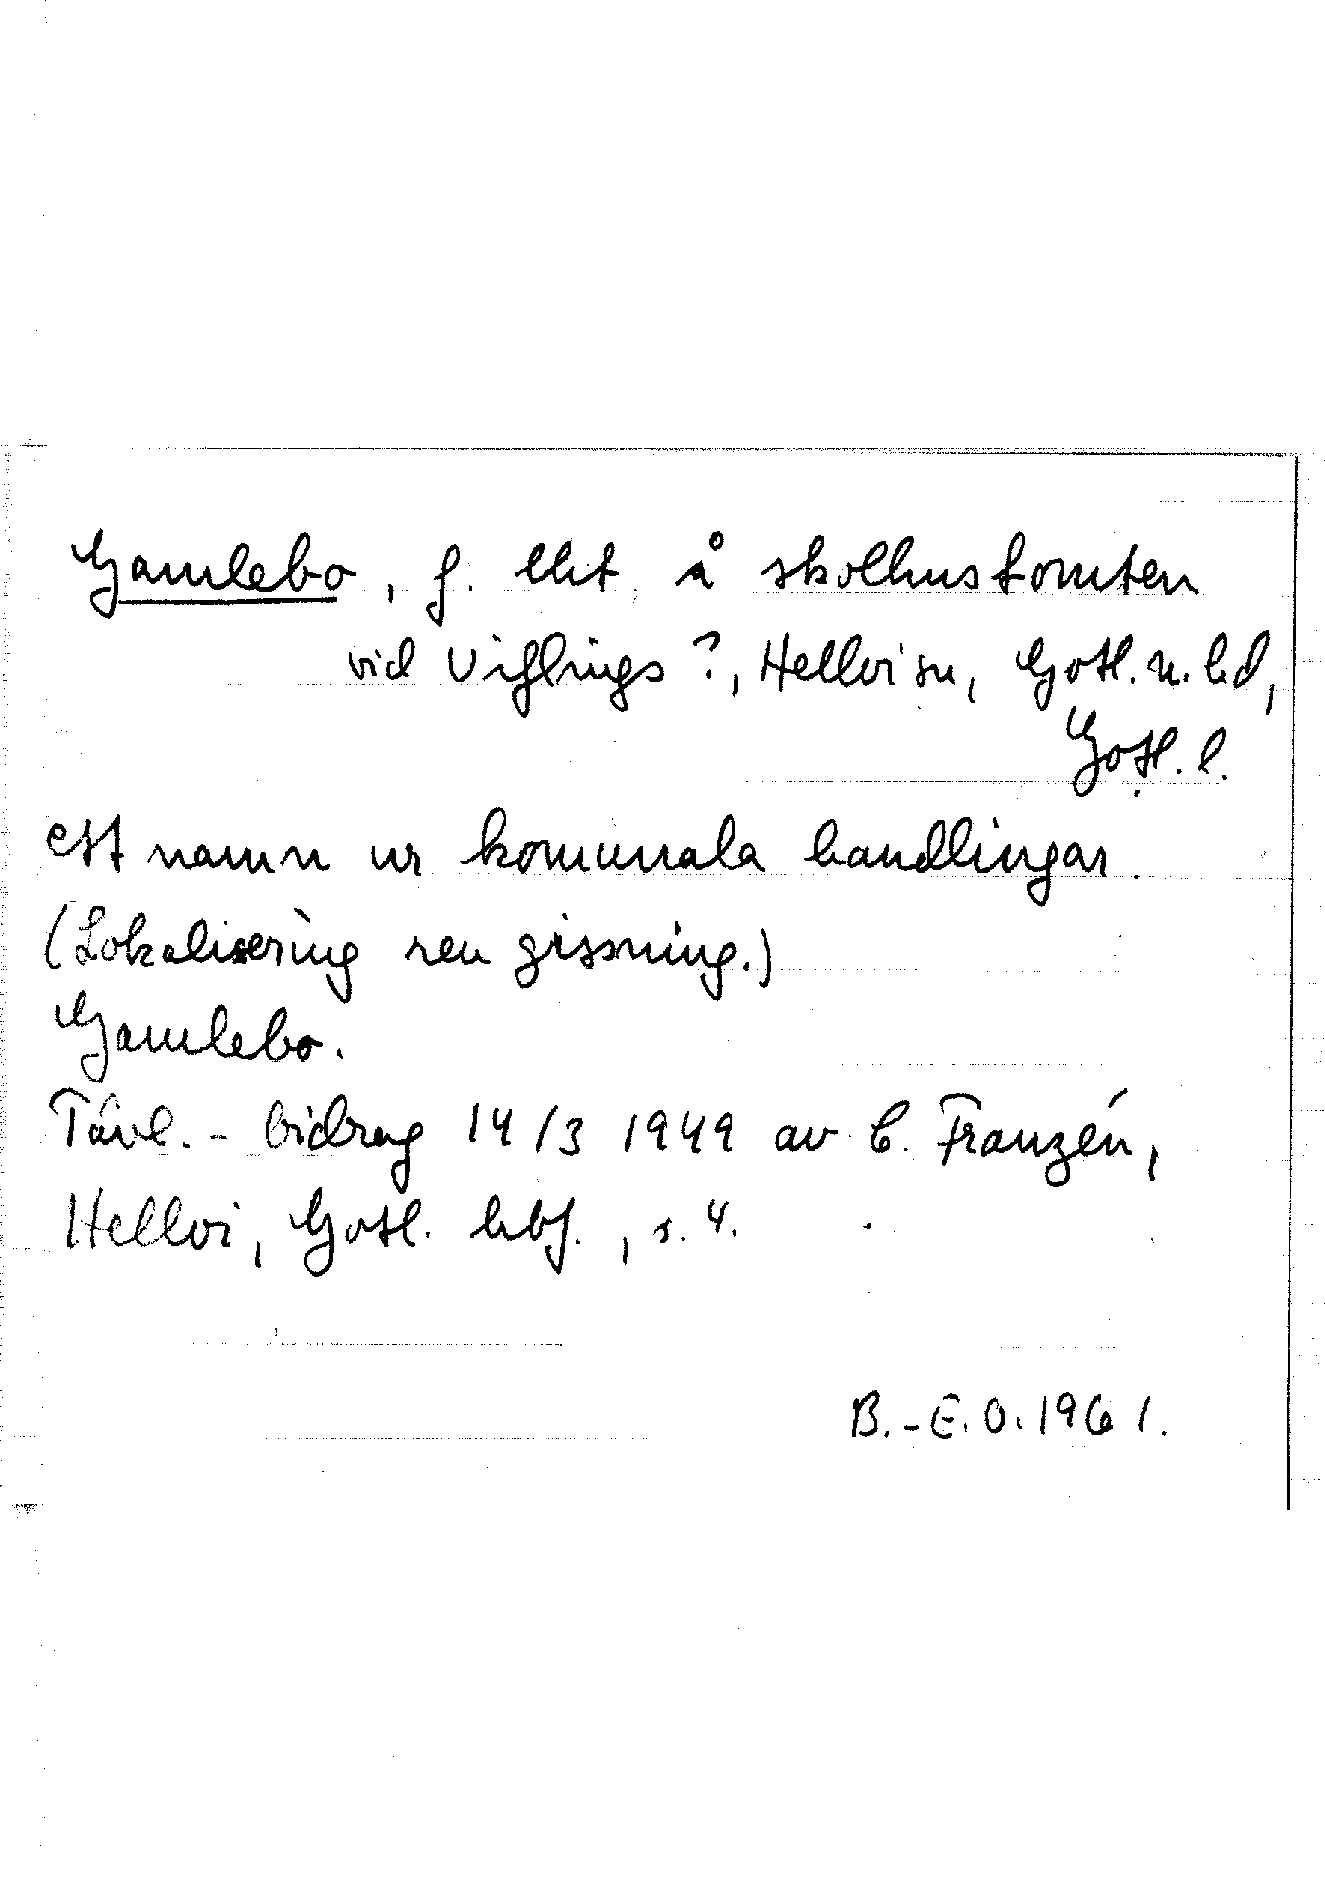 Gamlebo, f. lht å skolhustomten
vid Viflings ?, Hellvi sn, Gotl. n. hd,
Gotl. l.
ett namn ur komunala handlingar.
(Lokalisering ren gissning.)
Gamlebo.
Tävl. - bidrag 14/3 1949 av C. Franzén,
Hellvi, Gotl. hbf., s. 4.
B.-E.O. 1961.